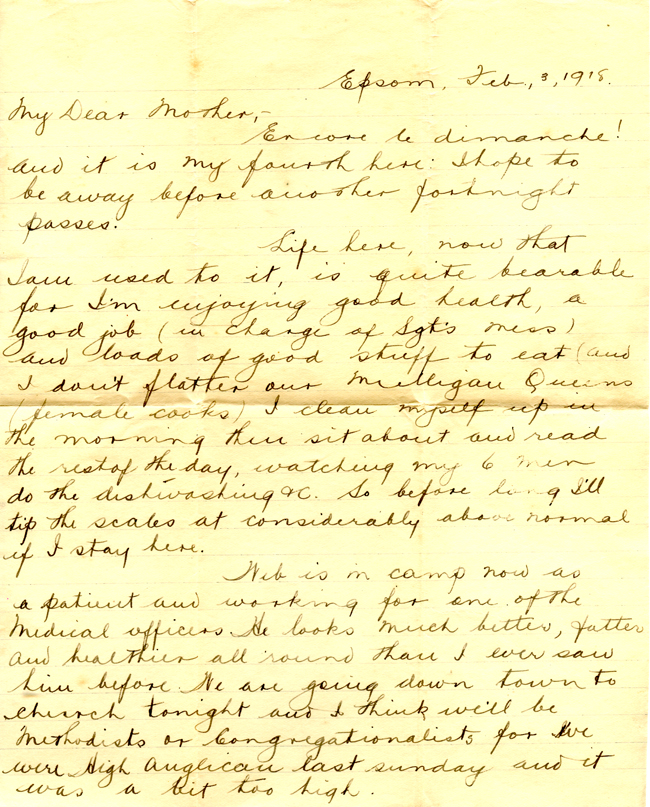 Epsom, Feb., 3, 1918.
My Dear Mother,-
Encore le dimanche!
and it is my fourth here: I hope to
be away before another fortnight
passes.
Life here, now that
I am used to it, is quite bearable
for I'm enjoying good health, a
good job (in charge of Sgt's mess)
and loads of good stuff to eat (and
I don't flatter our Mulligan Queens
(female cooks) I clean myself up in
the morning then sit about and read
the rest of the day, watching my 6 men
do the dishwashing &c. So before long I'll
tip the scales at considerably above normal
if I stay here.
is in camp now as
a patient and working for one of the
Medical officers. He looks much better, fatter
and healthier all round than I ever saw
him before. We are going down town to
church tonight and I think we'll be
Methodists or Congregationalists for we
were High Anglican last sunday and it
was a bit too high.